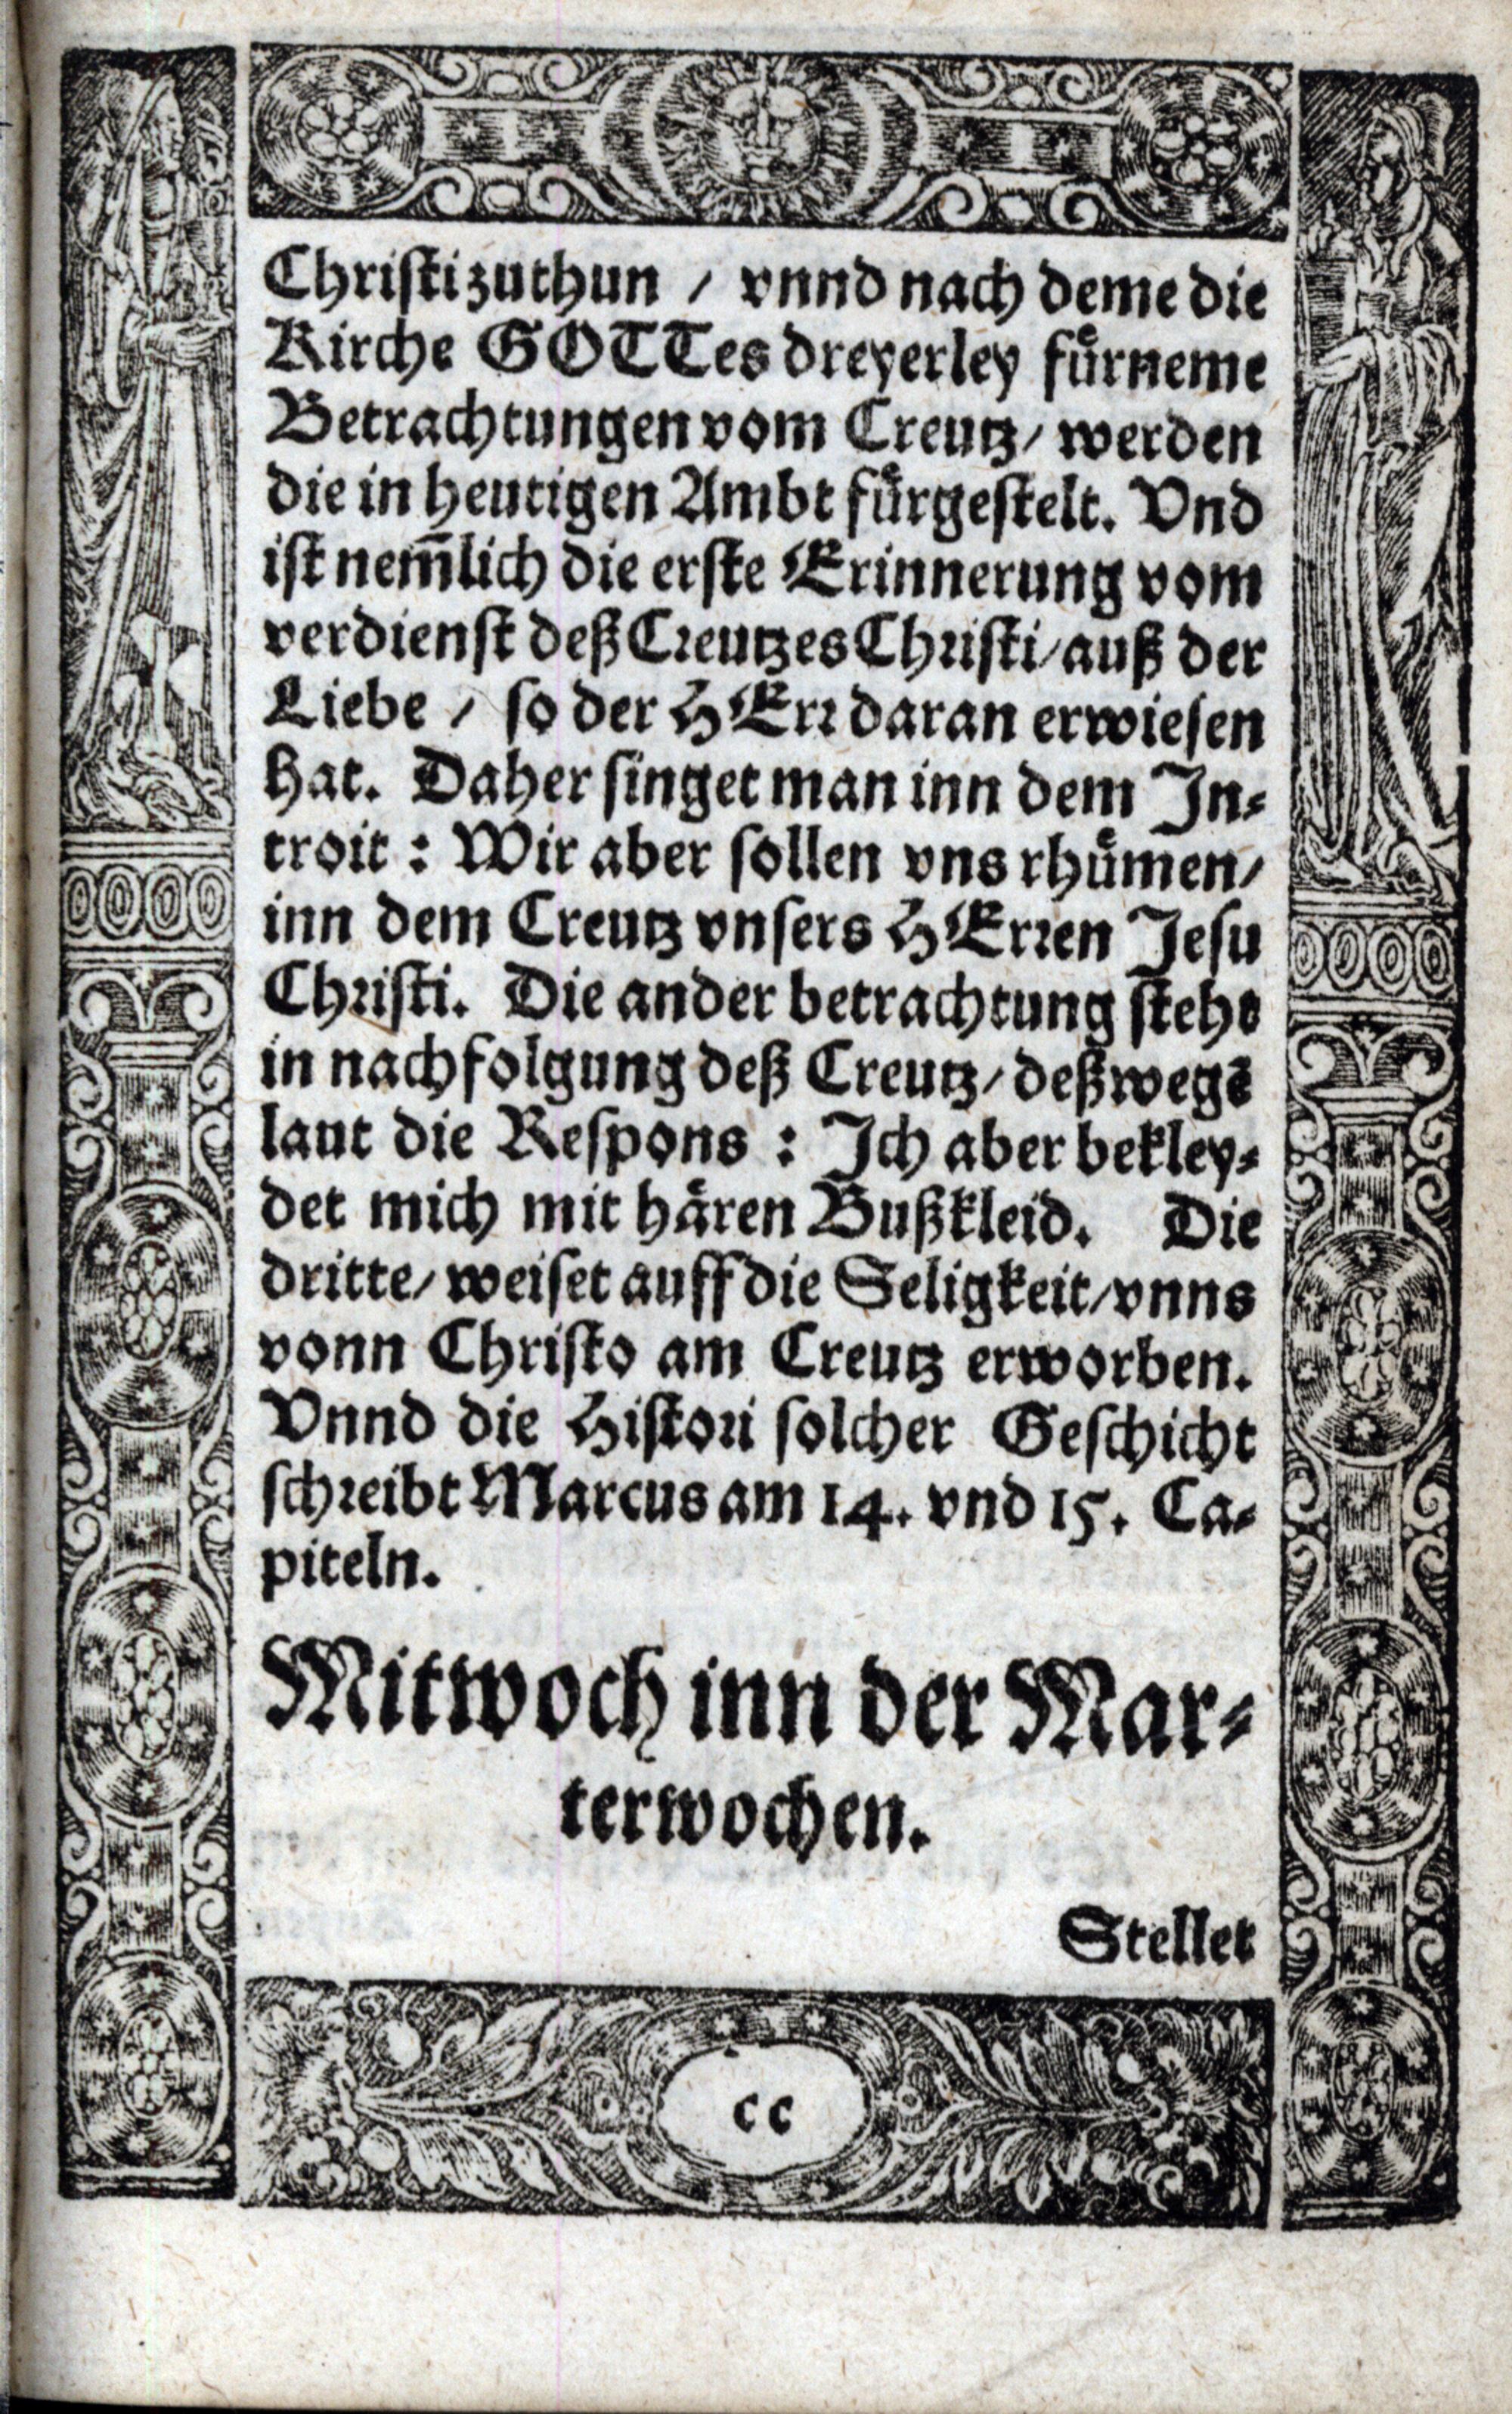 Christi zuthun / vnnd nach deme die
Kirche GOTTes dreyerley fuͤrneme
Betrachtungen vom Creutz / werden
die in heutigen Ambt fuͤrgestelt. Vnd
ist nem̃lich die erste Erinnerung vom
verdienst deß Creutzes Christi / auß der
Liebe / so der HErr daran erwiesen
hat. Daher singet man inn dem In-
troit: Wir aber sollen vns rhuͤmen /
inn dem Creutz vnsers HErren Jesu
Christi. Die ander betrachtung steht
in nachfolgung deß Creutz / deßwegẽ
laut die Respons: Ich aber bekley-
det mich mit haͤren Bußkleid. Die
dritte / weiset auff die Seligkeit / vnns
vonn Christo am Creutz erworben.
Vnnd die Histori solcher Geschicht
schreibt Marcus am 14. vnd 15. Ca-
piteln.
Mitwoch inn der Mar-
terwochen.
Stellet
cc